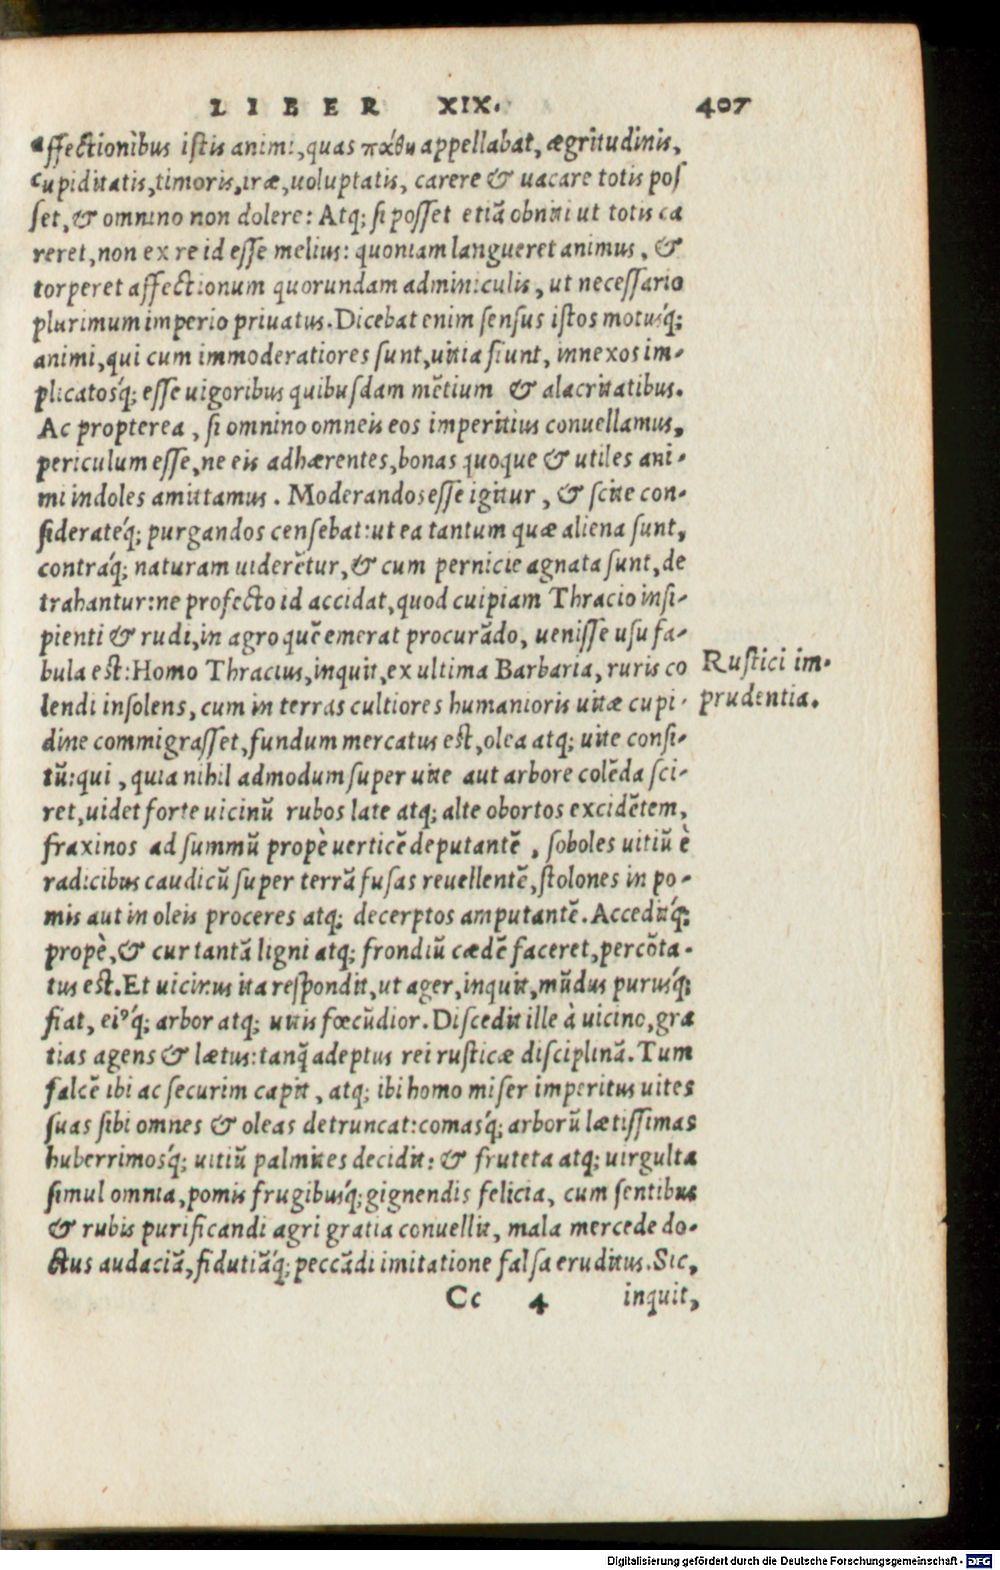 LIBER XIX. 407
affectionibus istis animi, quas πάθη appellabat, ægritudinis,
cupiditatis, timoris, iræ, uoluptatis, carere & uacare totis pos
set, & omnino non dolere: Atq; si posset etiã obniti ut totis ca
reret, non ex re id esse melius: quoniam langueret animus, &
torperet affectionum quorundam adminiculis, ut necessario
plurimum imperio priuatus. Dicebat enim sensus istos motusq́;
animi, qui cum immoderatiores sunt, uitia fiunt, innexos im-
plicatosq́; esse uigoribus quibusdam mẽtium & alacritatibus.
Ac propterea, si omnino omneis eos imperitius conuellamus,
periculum esse, ne eis adhærentes, bonas quoque & utiles ani-
mi indoles amittamus. Moderandos esse igitur, & scite con-
siderateq́; purgandos censebat: ut ea tantum quæ aliena sunt,
contráq; naturam uiderẽtur, & cum pernicie agnata sunt, de
trahantur: ne profecto id accidat, quod cuipiam Thracio insi-
pienti & rudi, in agro quẽ emerat procurãdo, uenisse usu fa-
bula est: Homo Thracius, inquit, ex ultima Barbaria, ruris co
lendi insolens, cum in terras cultiores humanioris uitæ cupi-
dine commigrasset, fundum mercatus est, olea atq; uite consi-
tũ: qui, quia nihil admodum super uite aut arbore colẽda sci-
ret, uidet forte uicinũ rubos late atq; alte obortos excidẽtem,
fraxinos ad summũ propè uerticẽ deputantẽ, soboles uitiũ è
radicibus caudicũ super terrã fusas reuellentẽ, stolones in po-
mis aut in oleis proceres atq; decerptos amputantẽ. Acceditq́;
propè, & cur tantã ligni atq; frondiũ cædẽ faceret, percõta-
tus est. Et uicinus ita respondit, ut ager, inquit, mũdus purusq́;
fiat, eiꝰq́; arbor atq; uitis fœcũdior. Discedit ille à uicino, gra
tias agens & lætus: tanq̃ adeptus rei rusticæ disciplinã. Tum
falcẽ ibi ac securim capit, atq; ibi homo miser imperitus uites
suas sibi omnes & oleas detruncat: comasq́; arborũ lætissimas
huberrimosq́; uitiũ palmites decidit: & fruteta atq; uirgulta
simul omnia, pomis frugibusq́; gignendis felicia, cum sentibus
& rubis purificandi agri gratia conuellit, mala mercede do-
ctus audaciã, fidutiãq́; peccãdi imitatione falsa eruditus. Sic,
Cc 4 inquit,
Rustici im-
prudentia.
Digitalisierung gefördert durch die Deutsche Forschungsgemeinschaft - DFG